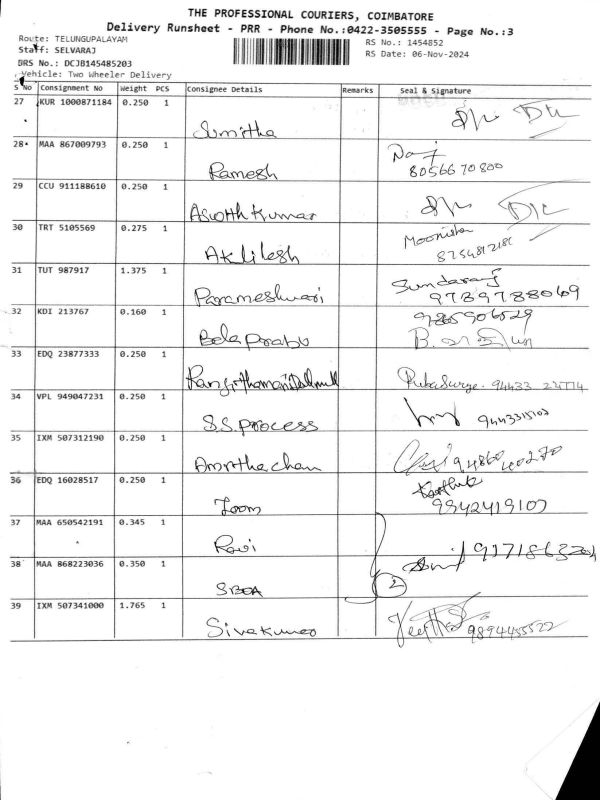 THE PROFESSIONAL COURIERS, COIMBATORE
Delivery Runsheet - PRR - Phone No.:0422-3505555 - Page No.:3
Route: TELUNGUPALAYAM
RS No.: 1454852
Staff: SELVARAJ
RS Date: 06-Nov-2024
DRS No.: DCJB145485203
Vehicle: Two Wheeler Delivery
S No Consignment No Weight PCS Consignee Details Remarks Seal & Signature
27 KUR 1000871184 0.250 1
Sumitha
28 MAA 867009793 0.250 1
Ramesh 8056670800
29 CCU 911188610 0.250 1
Aswath Kumar
30 TRT 5105569 0.275 1
Akhilesh Moonisha
31 TUT 987917 1.375 1
Parameshwari Sundaraj 9789788069
32 KDI 213767 0.160 1
Bala Prabu
33 EDQ 23877333 0.250 1
34 VPL 949047231 0.250 1
S.S. Process
35 IXM 507312190 0.250 1
Amirtha chan
36 EDQ 16028517 0.250 1
Zoom 9942419107
37 MAA 650542191 0.345 1
Ravi
38 MAA 868223036 0.350 1
2
39 IXM 507341000 1.765 1
Sivakumar 9894455522